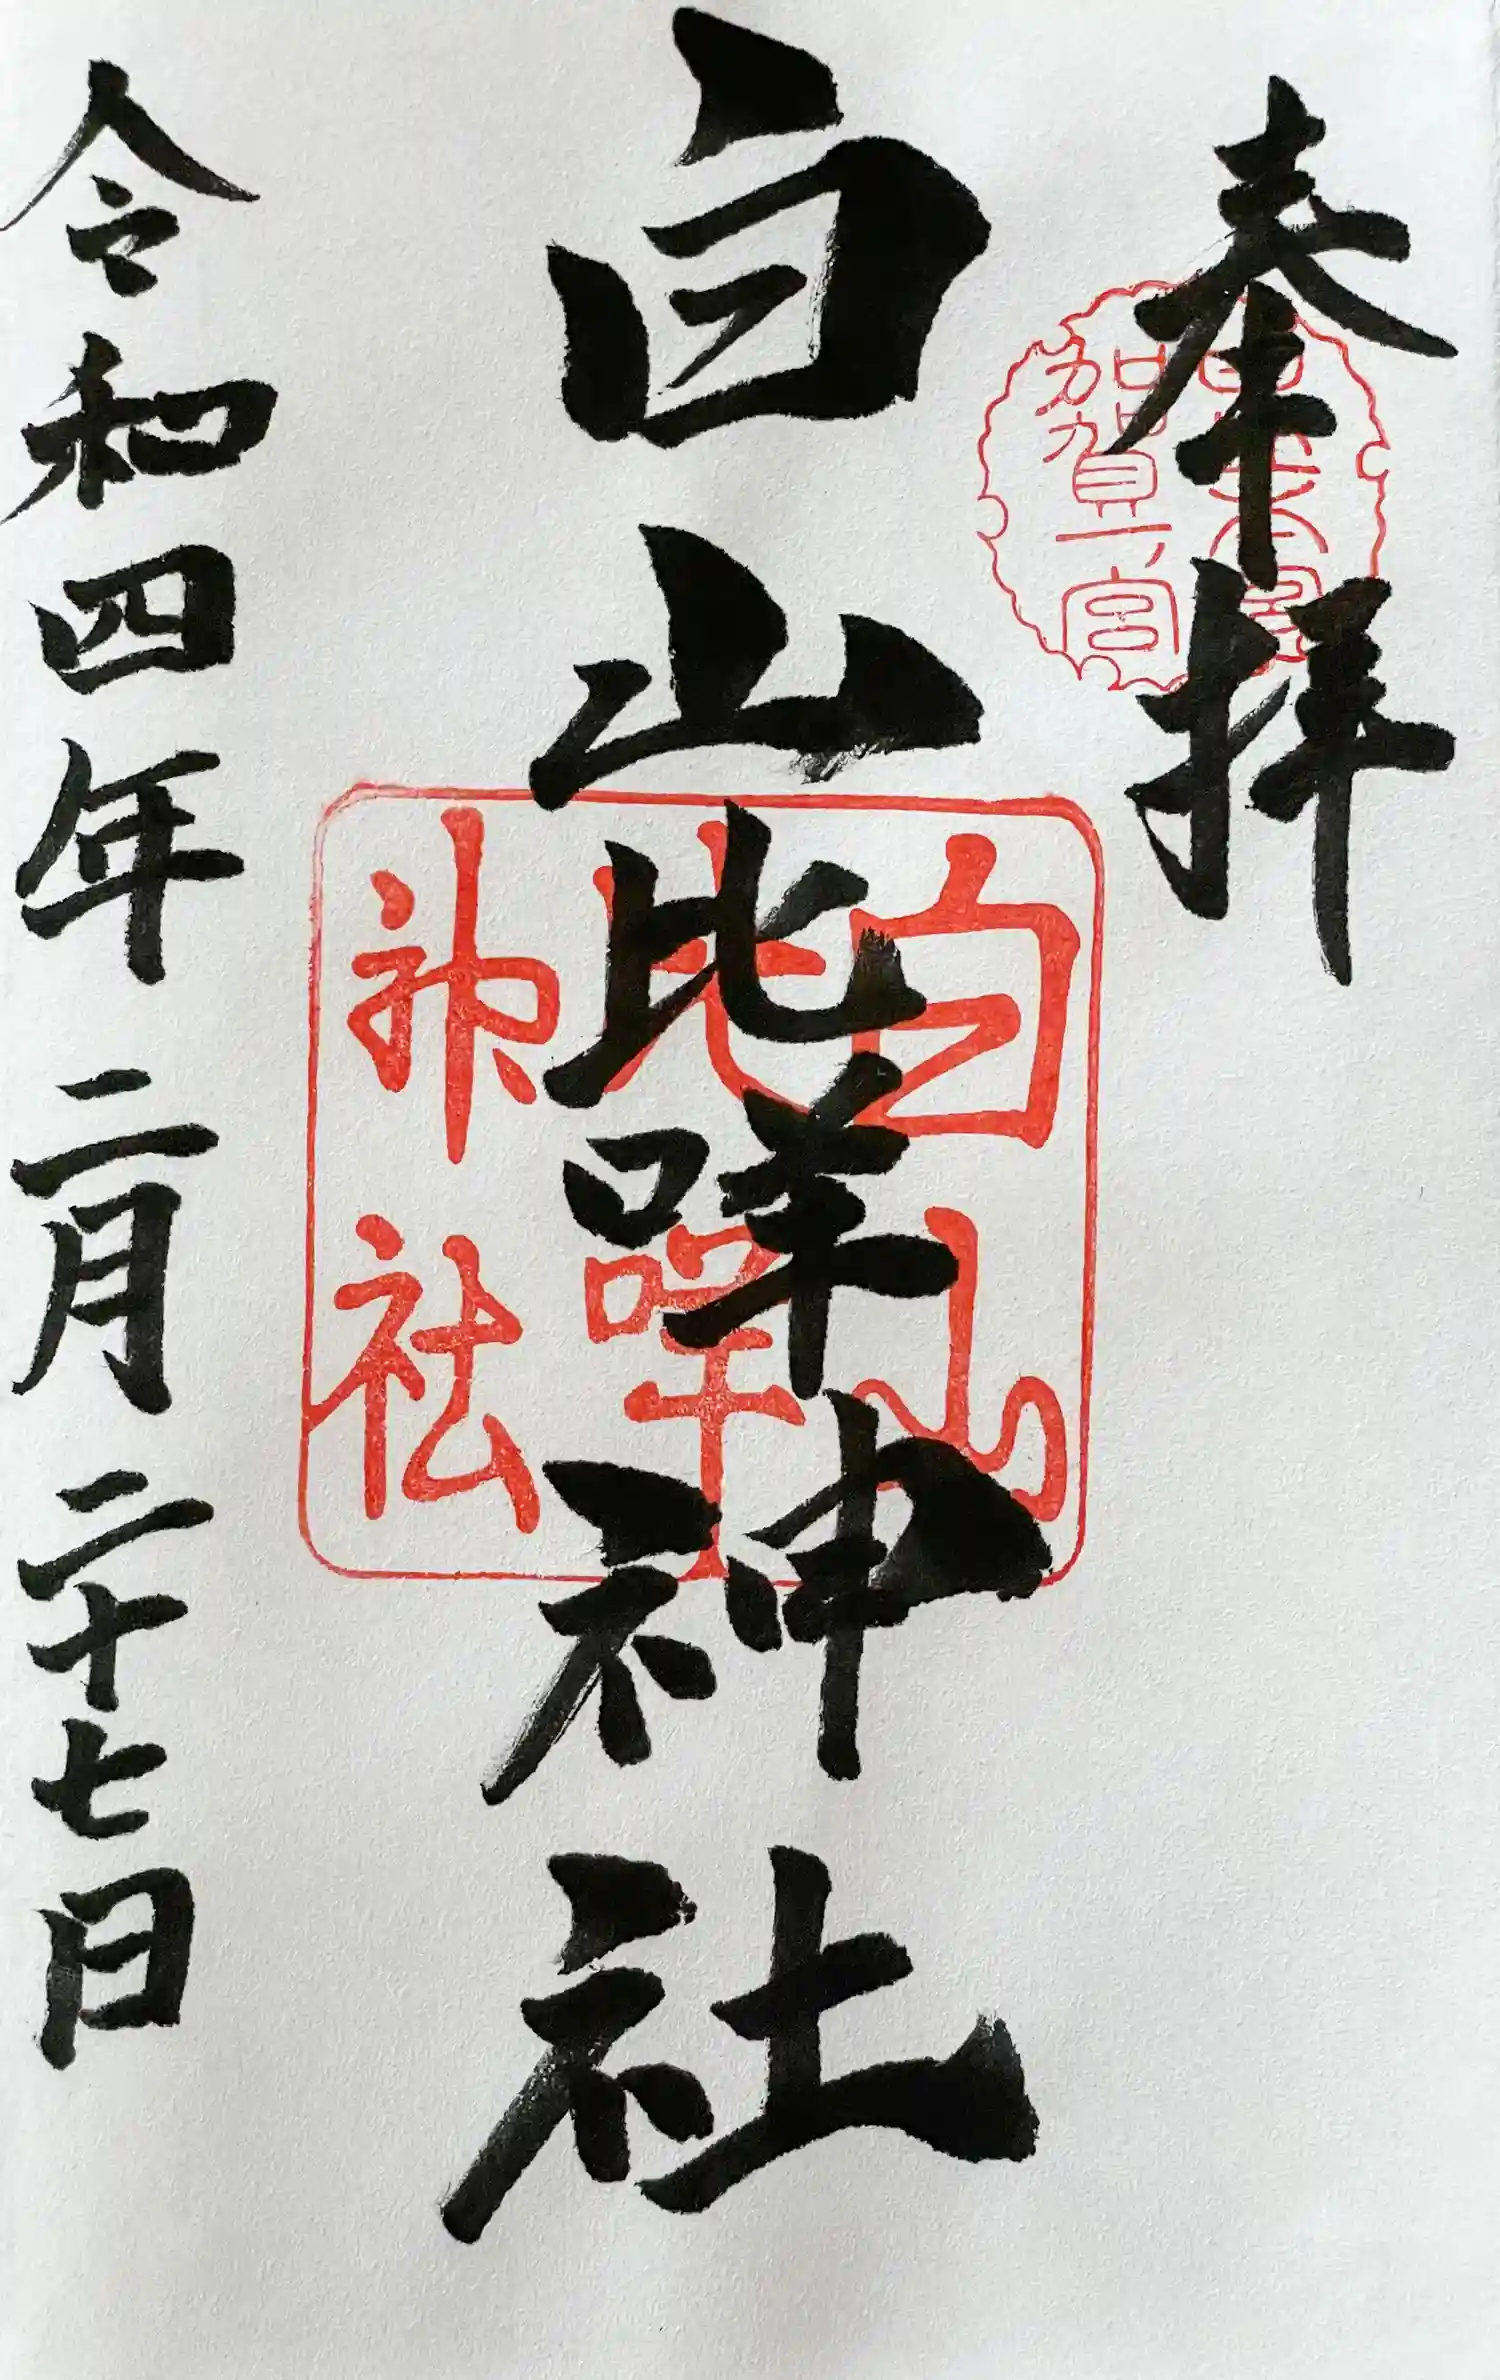 奉拝
加賀一宮
白山比咩神社
白山
比咩
神社
令和四年二月二十七日